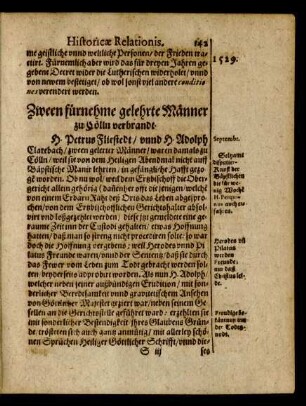 Historicæ Relationis. 142
me geistliche vnnd weltliche Personen/ der Frieden tra-
ctirt. Fürnemlich aber wird das für dreyen Jahren ge-
gebene Decret wider die Lutherischen widerholet/ vnnd
von newem bestetiget/ ob wol sonst viel andere conditio-
nes verendert werden.
1529.
Zween fürnehme gelehrte Männer
zu Cölln verbrandt.
H. Petrus Fliestedt/ vnnd H. Adolph
Clarebach/ zween gelerter Männer/ waren damals zu
Cölln/ weil sie von dem Heiligen Abendmal nicht auff
Bäpstliche Manir lehrten/ in gefängliche Hafft gezo-
gen worden. Ob nu wol weil dem Ertzbischoff die Ober-
gericht allein gehörig/ daselbsten offt die jenigen/ welche
von einem Erbarn Raht des Orts das Leben abgespro-
chen worden/ von den Ertzbischofflichen Gerichtshaltern absolvirt
vnd loßgezehlet werden: diese beyde/ weil sie eine ge-
raume Zeit in der Custodi gehalten/ etwas Hoffnung
hatten/ daß man so streng nicht procediren solte: so war
doch die Hoffnung vergebens/ weil Herodes vnnd Pi-
latus Freunde waren/ vnnd der Sentenß/ daß sie durch
das Fewer vom Leben zum Todt gebracht werden sol-
ten/ beyderseits approbirt worden. Als nun H. Adolph/
welcher neben seiner außbündigen Erudition/ mit son-
derlicher Beredsamkeit vnnd gravitetischem Ansehen
von Göttlicher Majestet gezieret war/ neben seinem Gesellen
an die Gerichtsstelle geführet ward: erzehlten sie
mit sonderlicher Bestendigkeit ihres Glaubens Grün-
de/ trösteten sich auch gantz anmütig/ mit allerley schö-
nen Sprüchen Heiliger Göttlicher Schrifft/ vnnd die-
S iij ses
Septembr.
Seltzame
Herodes vñ
Pilatus
werden
Freunde/
nur daß
Christus ley-
de.
Freudige be-
käntnuß im
der Todes-
noht.